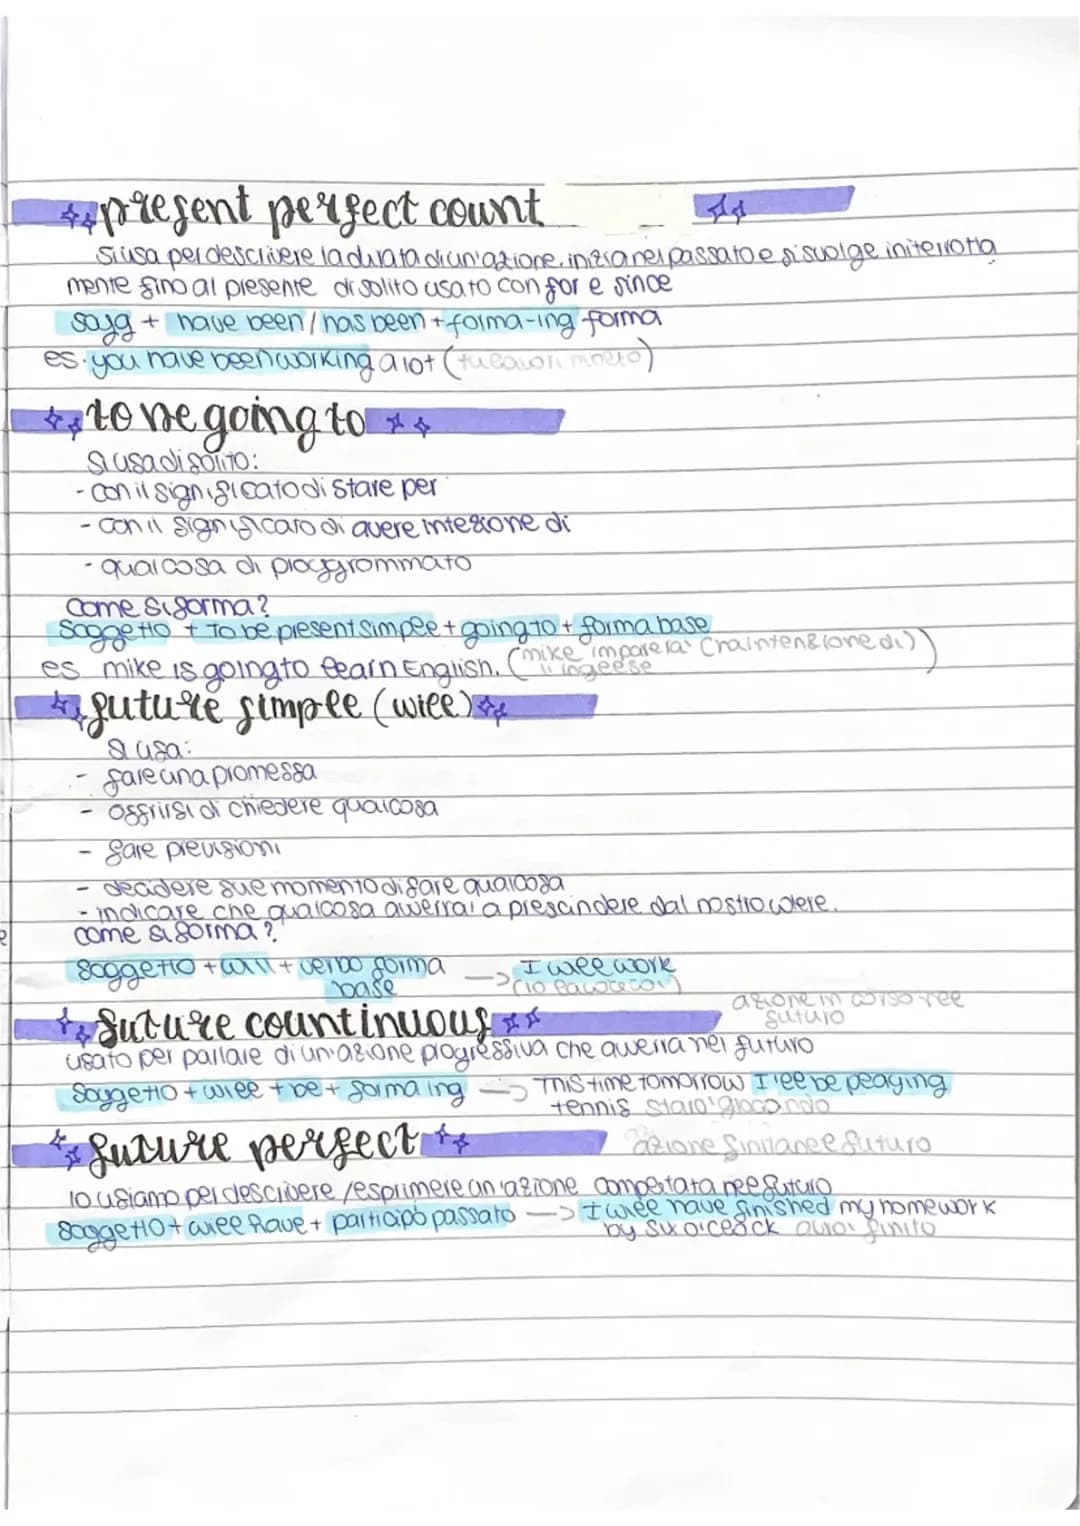 present perfect count
si usa per descrivere la durata di un'azione. inizia nel passato e si svolge initerrotta
mente fino al presente di solito usato con for e since
sogg + have been / has been + forma-ing forma
es. you have been working a lot (tu lavori molto)
to be going to
Si usa di solito:
- con il significato di stare per
- con il significato di avere intezione di
- qualcosa di proggrammato
come si forma?
Soggetto + To be present simple + going to + forma base
es mike is going to learn English. (mike imparera' (ha intenzione di)
l'inglese)
future simple (will)
Si usa:
- fare una promessa
- offrirsi di chiedere qualcosa
- fare previsioni
- decidere sul momento di fare qualcosa
- indicare che qualcosa avverra' a prescindere dal nostro volere.
come si forma?
soggetto + will + verbo forma base → I will work
(io lavorerò)
future countinuous
azione in corso nel futuro
usato per parlare di un'azione progressiva che avverra nel futuro
Soggetto + will + be + forma ing → This time tomorrow I'll be playing
tennis staro' giocando
future perfect
azione finita nel futuro
lo usiamo per descrivere / esprimere un'azione completata nel futuro
soggetto + will have + participo passato → I will have finished my homework
by six o'clock avro' finito